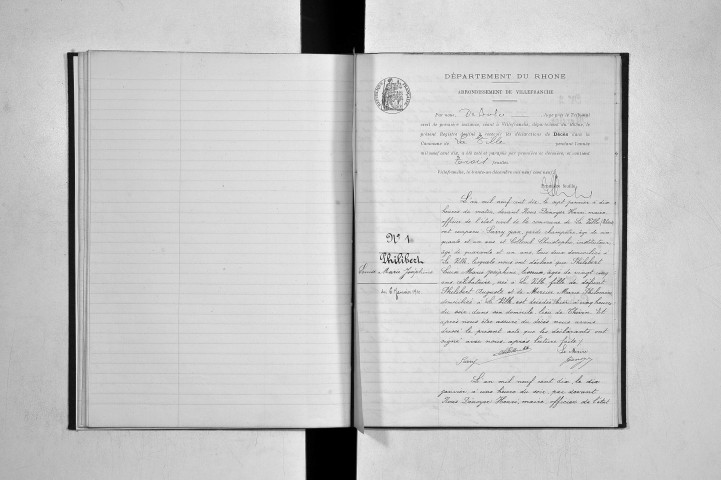 DÉPARTEMENT DU RHONE
ARRONDISSEMENT DE VILLEFRANCHE
Par nous, juge près le Tribunal
civil de première instance, séant à Villefranche, département du Rhône, le
présent Registre destiné à recevoir les déclarations de Décès dans la
Commune de La Ville pendant l'année
mil neuf cent dix, a été coté et paraphé par première et dernière, et contient
Trois feuilles
Villefranche, le trente-un décembre mil neuf cent neuf
Première feuille
N° 1
Philibert
Louise Marie Joséphine
du 6 Janvier 1910
L'an mil neuf cent dix le sept janvier à dix
heures du matin, devant Nous Henri maire
officier de l'état civil de la commune de La Ville, Rhône,
ont comparu garde champêtre, âgé de cin
quante et un ans et Christophe instituteur,
âgé de quarante et un ans tous deux domiciliés à
La Ville, lesquels nous ont déclaré que Philibert
Louise Marie Joséphine, âgée de vingt cinq
ans célibataire, née à La Ville fille de défunt
Philibert Auguste et de Marie
domiciliés à La Ville est décédée hier à cinq heures
du soir dans son domicile, lieu de Et
après nous être assuré du décès nous avons
dressé le présent acte que les déclarants ont
signé avec nous après lecture faite.
Le Maire
L'an mil neuf cent dix le dix
janvier, à une heure du soir par devant
Nous Henri, maire, officier de l'état